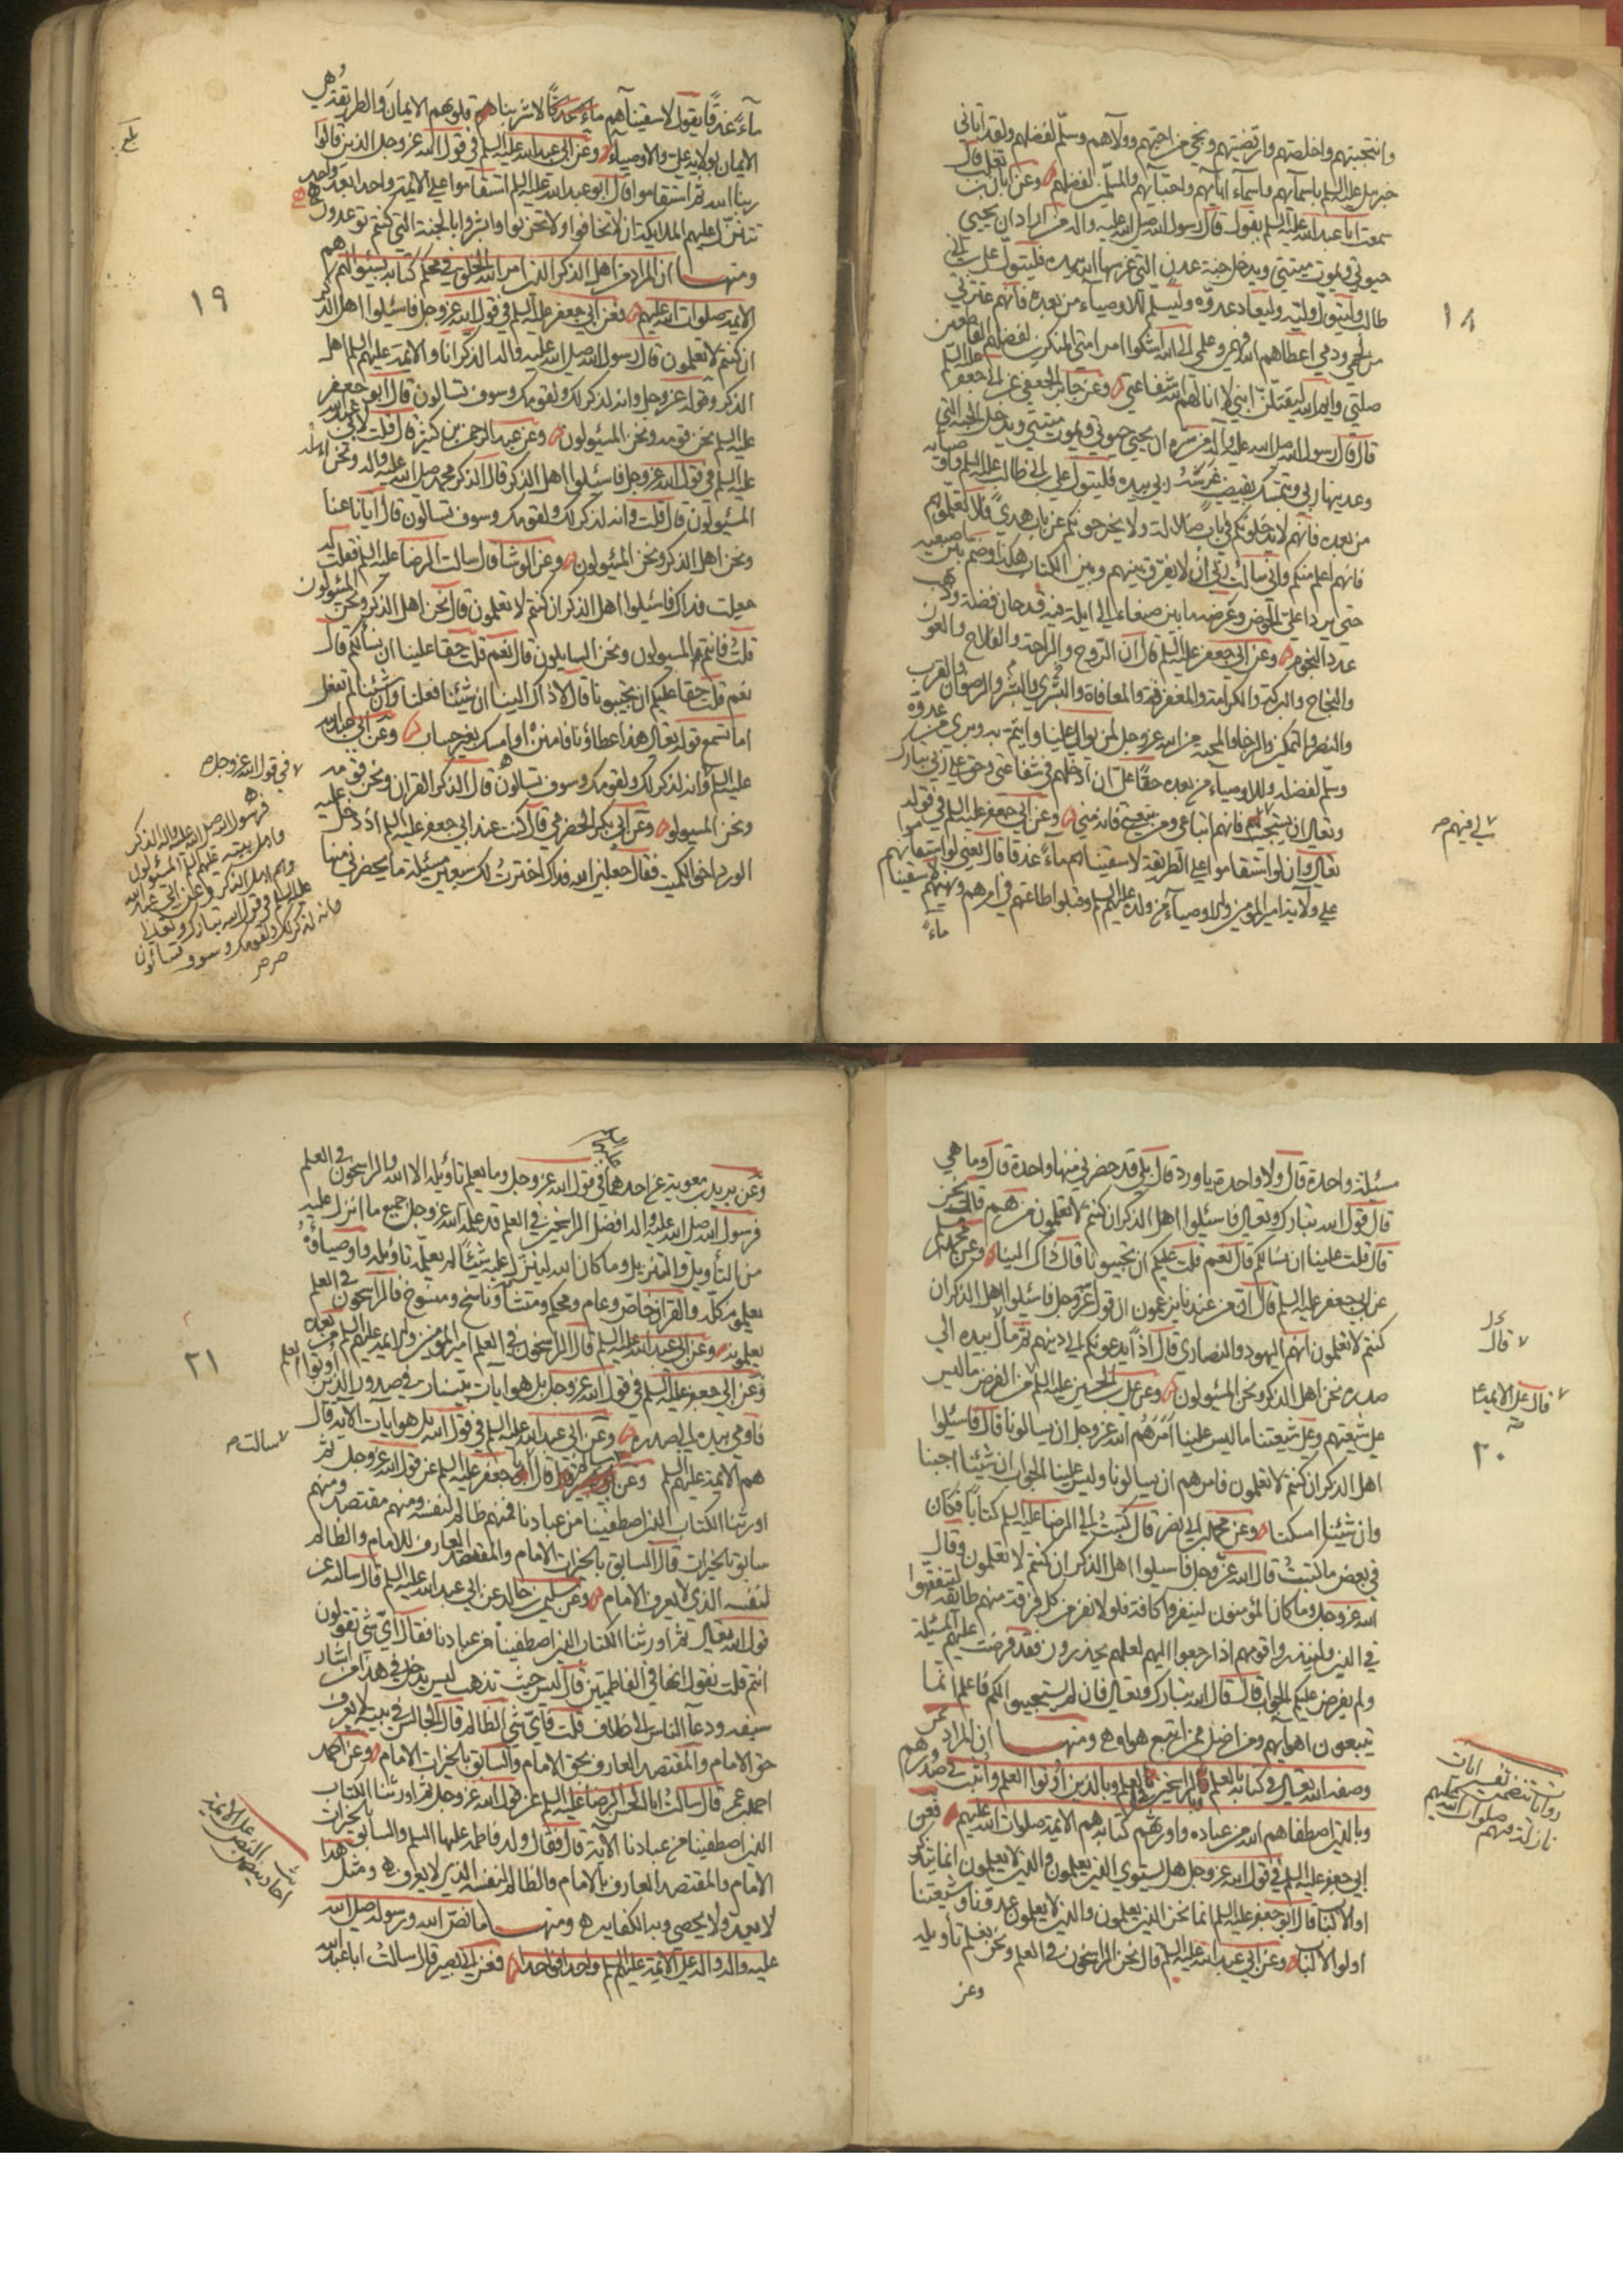 وانتجبتهم واخلصتهم وارتضيتهم ونجى من احبهم ووالاهم وسلم لفضلهم ولقد اتاني
جبرئيل عليه السلم باسمائهم واسماء ابائهم واحبائهم والمسلمين لفضلهم وعن ابان بن تغلب قال
سمعت ابا عبد الله عليه السلم يقول قال رسول الله صلى الله عليه واله من اراد ان يحيى
حيوتي ويموت ميتتي ويدخل جنة عدن التي غرسها الله بيده فليتول علي بن ابي
طالب وليتول وليه وليعاد عدوه وليسلم للاوصياء من بعده فانهم عترتي
من لحمي ودمي اعطاهم الله فهمي وعلمي الى الله اشكوا امر امتي المنكرين لفضلهم القاطعين
صلتي وايم الله ليقتلن ابني لا انالهم الله شفاعتي وعن جابر الجعفي عن ابي جعفر عليه السلم
قال قال رسول الله صلى الله عليه وآله من سره ان يحيى حيوتي ويموت ميتتي ويدخل الجنة التي
وعدنيها ربي ويتمسك بقضيب غرسه ربي بيده فليتول علي بن ابي طالب عليه السلم واوصيائه
من بعده فانهم لا يدخلونكم في باب ضلالة ولا يخرجونكم عن باب هدى فلا تعلموهم
فانهم اعلم منكم واني سألت ربي ان لا يفرق بينهم وبين الكتاب هكذا وضم بين اصبعيه
حتى يردا علي الحوض وعرضه ما بين صنعاء الى ايلة فيه قدحان فضة وذهب
عدد النجوم وعن ابي جعفر عليه السلم قال ان الروح والراحة والفلاح والعون
والنجاح والبركة والكرامة والمغفرة والمعافاة والبشرى والرضوان والقرب
والنصر والتمكن والرجا والمحبة من الله عز وجل لمن تولى عليا وائتم به وبرئ من عدوه
وسلم لفضله وللاوصياء من بعده حقا علي ان ادخلهم في شفاعتي وحق على ربي تبارك
وتعالى ان يستجيب فانهم اتباعي ومن تبعني فانه مني وعن ابي جعفر عليه السلم في قوله
لي فيهم صح
تعالى وان لو استقاموا على الطريقة لاسقيناهم ماء غدقا قال يعني لو استقاموا
على ولاية امير المؤمنين والاوصياء من ولده عليهم السلم وقبلوا طاعتهم في امرهم ونهيهم لاسقيناهم
ماء
١٨
ماء غدقا يقول لاسقيناهم ماء غدقا لاشربنا قلوبهم الايمان والطريقة هي
الايمان بولاية علي والاوصياء وعن ابي عبد الله عليه السلم في قول الله عز وجل الذين قالوا
ربنا الله ثم استقاموا قال ابو عبد الله عليه السلم استقاموا على الائمة واحدا بعد واحد
تتنزل عليهم الملائكة ان لا تخافوا ولا تحزنوا وابشروا بالجنة التي كنتم توعدون
ومنها ان المراد من اهل الذكر الذين امر الله الخلق في محكم كتابه بسئوالهم هم
الائمة صلوات الله عليهم فعن ابي جعفر عليه السلم في قول الله عز وجل فاسئلوا اهل الذكر
ان كنتم لا تعلمون قال رسول الله صلى الله عليه واله الذكر انا والائمة عليهم السلم اهل
الذكر وقوله عز وجل وانه لذكر لك ولقومك وسوف تسالون قال ابو جعفر
عليه السلم نحن قومه ونحن المسئولون وعن عبد الرحمن بن كثير قال قلت لابي عبد الله
عليه السلم في قول الله عز وجل فاسئلوا اهل الذكر قال الذكر محمد صلى الله عليه واله ونحن اهله
المسئولون قال قلت وانه لذكر لك ولقومك وسوف تسالون قال ايانا عنا
ونحن اهل الذكر ونحن المسئولون وعن الوشا قال سالت الرضا عليه السلم فقلت له
جعلت فداك فاسئلوا اهل الذكر ان كنتم لا تعلمون قال نحن اهل الذكر ونحن المسئولون
قلت فانتم المسيولون ونحن السايلون قال نعم قلت حقا علينا ان نسألكم قال
نعم قلت حقا عليكم ان تجيبونا قال لا ذاك الينا ان شئنا فعلنا وان شئنا لم نفعل
اما تسمع قوله تعالى هذا عطاؤنا فامنن او امسك بغير حساب وعن ابي عبد الله
عليه السلم وانه لذكر لك ولقومك وسوف تسالون قال الذكر القران ونحن قومه
ونحن المسيولون وعن ابي بكر الحضرمي قال كنت عند ابي جعفر عليه السلم اذ دخل عليه
الورد اخو الكميت فقال جعلني الله فداك اخترت لك سبعين مسئلة ما يحضرني منها
بلغ
١٩
في قول الله عز وجل
فرسول الله صلى الله عليه واله الذكر
واهل بيته عليهم السلم المسئولون
وهم اهل الذكر وعن ابي عبد الله
عليه السلم في قول الله تبارك وتعالى
وانه لذكر لك ولقومك وسوف تسالون
مسئلة واحدة قال ولا واحدة يا ورد قال بلى قد حضرني منها واحدة قال وما هي
قال قول الله تبارك وتعالى فاسئلوا اهل الذكر ان كنتم لا تعلمون من هم قال نحن
قال قلت علينا ان نسالكم قال نعم قلت عليكم ان تجيبونا قال ذاك الينا وعن محمد بن مسلم
عن ابي جعفر عليه السلم قال ان من عندنا يزعمون ان قول الله عز وجل فاسئلوا اهل الذكر ان
كنتم لا تعلمون انهم اليهود والنصارى قال اذا يدعونكم الى دينهم ثم قال بيده الى
صدره نحن اهل الذكر ونحن المسئولون وعن علي بن الحسين عليه السلم من الفرض ما ليس
على شيعتهم وعلى شيعتنا ما ليس علينا امرهم الله عز وجل ان يسالونا قال فاسئلوا
اهل الذكر ان كنتم لا تعلمون فامرهم ان يسالونا وليس علينا الجواب ان شئنا اجبنا
وان شئنا امسكنا وعن محمد بن ابي نصر قال كتبت الى الرضا عليه السلم كتابا فكان
في بعض ما كتبت قال الله عز وجل فاسيلوا اهل الذكر ان كنتم لا تعلمون وقال
الله عز وجل وما كان المؤمنون لينفروا كافة فلولا نفر من كل فرقة منهم طائفة ليتفقهوا
في الدين ولينذروا قومهم اذا رجعوا اليهم لعلهم يحذرون فقد فرضت عليهم المسئلة
ولم يفرض عليكم الجواب قال قال الله تبارك وتعالى فان لم يستجيبوا لكم فاعلم انما
يتبعون اهوائهم ومن اضل ممن اتبع هواه ومنها ان المراد بمن
وصفه الله تعالى في كتابه بالعلم وبالراسخين في العلم وبالذين اوتوا العلم واثبت في صدورهم
وبالذين اصطفاهم الله من عباده واورثهم كتابه هم الائمة صلوات الله عليهم فعن
ابي جعفر عليه السلم في قول الله عز وجل هل يستوي الذين يعلمون والذين لا يعلمون انما يتذكر
اولو الالباب قال ابو جعفر عليه السلم انما نحن الذين يعلمون والذين لا يعلمون عدونا وشيعتنا
اولوا الالباب وعن ابي عبد الله عليه السلم قال نحن الراسخون في العلم ونحن نعلم تأويله
وعن
قال
قال على الائمة
٢٠
روايات تتضمن تفسير ايات
نازلة فيهم صلوات الله عليهم
وعن بريد بن معوية عن احدهما في قول الله عز وجل وما يعلم تأويله الا الله والراسخون في العلم
فرسول الله صلى الله عليه واله افضل الراسخين في العلم قد علمه الله عز وجل جميع ما انزل عليه
من التأويل والتنزيل وما كان الله لينزل عليه شيئا لم يعلمه تاويله واوصياؤه
يعلمونه كله والقران خاص وعام ومحكم ومتشابه وناسخ ومنسوخ فالراسخون في العلم
يعلمونه وعن ابي عبد الله عليه السلم قال الراسخون في العلم امير المؤمنين والائمة عليهم السلم من بعده
وعن ابي جعفر عليه السلم في قول الله عز وجل بل هو ايات بينات في صدور الذين اوتوا العلم
فاومى بيده الى صدره وعن ابي عبد الله عليه السلم في قول الله بل هو ايات الآية قال
هم الائمة عليهم السلم وعن قال ابا جعفر عليه السلم عن قول الله عز وجل ثم
سالت صح
اورثنا الكتاب الذين اصطفينا من عبادنا فمنهم ظالم لنفسه ومنهم مقتصد ومنهم
سابق بالخيرات قال السابق بالخيرات الامام والمقتصد العارف للامام والظالم
لنفسه الذي لا يعرف الامام وعن سليمن بن خالد عن ابي عبد الله عليه السلم قال سالته عن
قول الله تعالى ثم اورثنا الكتاب الذين اصطفينا من عبادنا فقال اي شي تقولون
انتم قلت نقول انها في الفاطميين قال ليس حيث تذهب ليس يدخل في هذا من اشار
بسيفه ودعا الناس الى خلاف قلت فاي شي الظالم قال الجالس في بيته لا يعرف
حق الامام والمقتصد العارف بحق الامام والسابق بالخيرات الامام وعن احمد
بن عمر قال سالت ابا الحسن الرضا عليه السلم عن قول الله عز وجل ثم اورثنا الكتاب
الذين اصطفينا من عبادنا الآية قال فقال ولد فاطمة عليها السلم والسابق بالخيرات
الامام والمقتصد العارف بالامام والظالم لنفسه الذي لا يعرف ومثل هذا
لا يعد ولا يحصى وبه الكفاية ومنها ما نص الله ورسوله صلى الله
عليه واله على الائمة عليهم السلم واحدا فواحدا فعن ابي بصير قال سالت ابا عبد الله
٢١
احاديث النص على الائمة